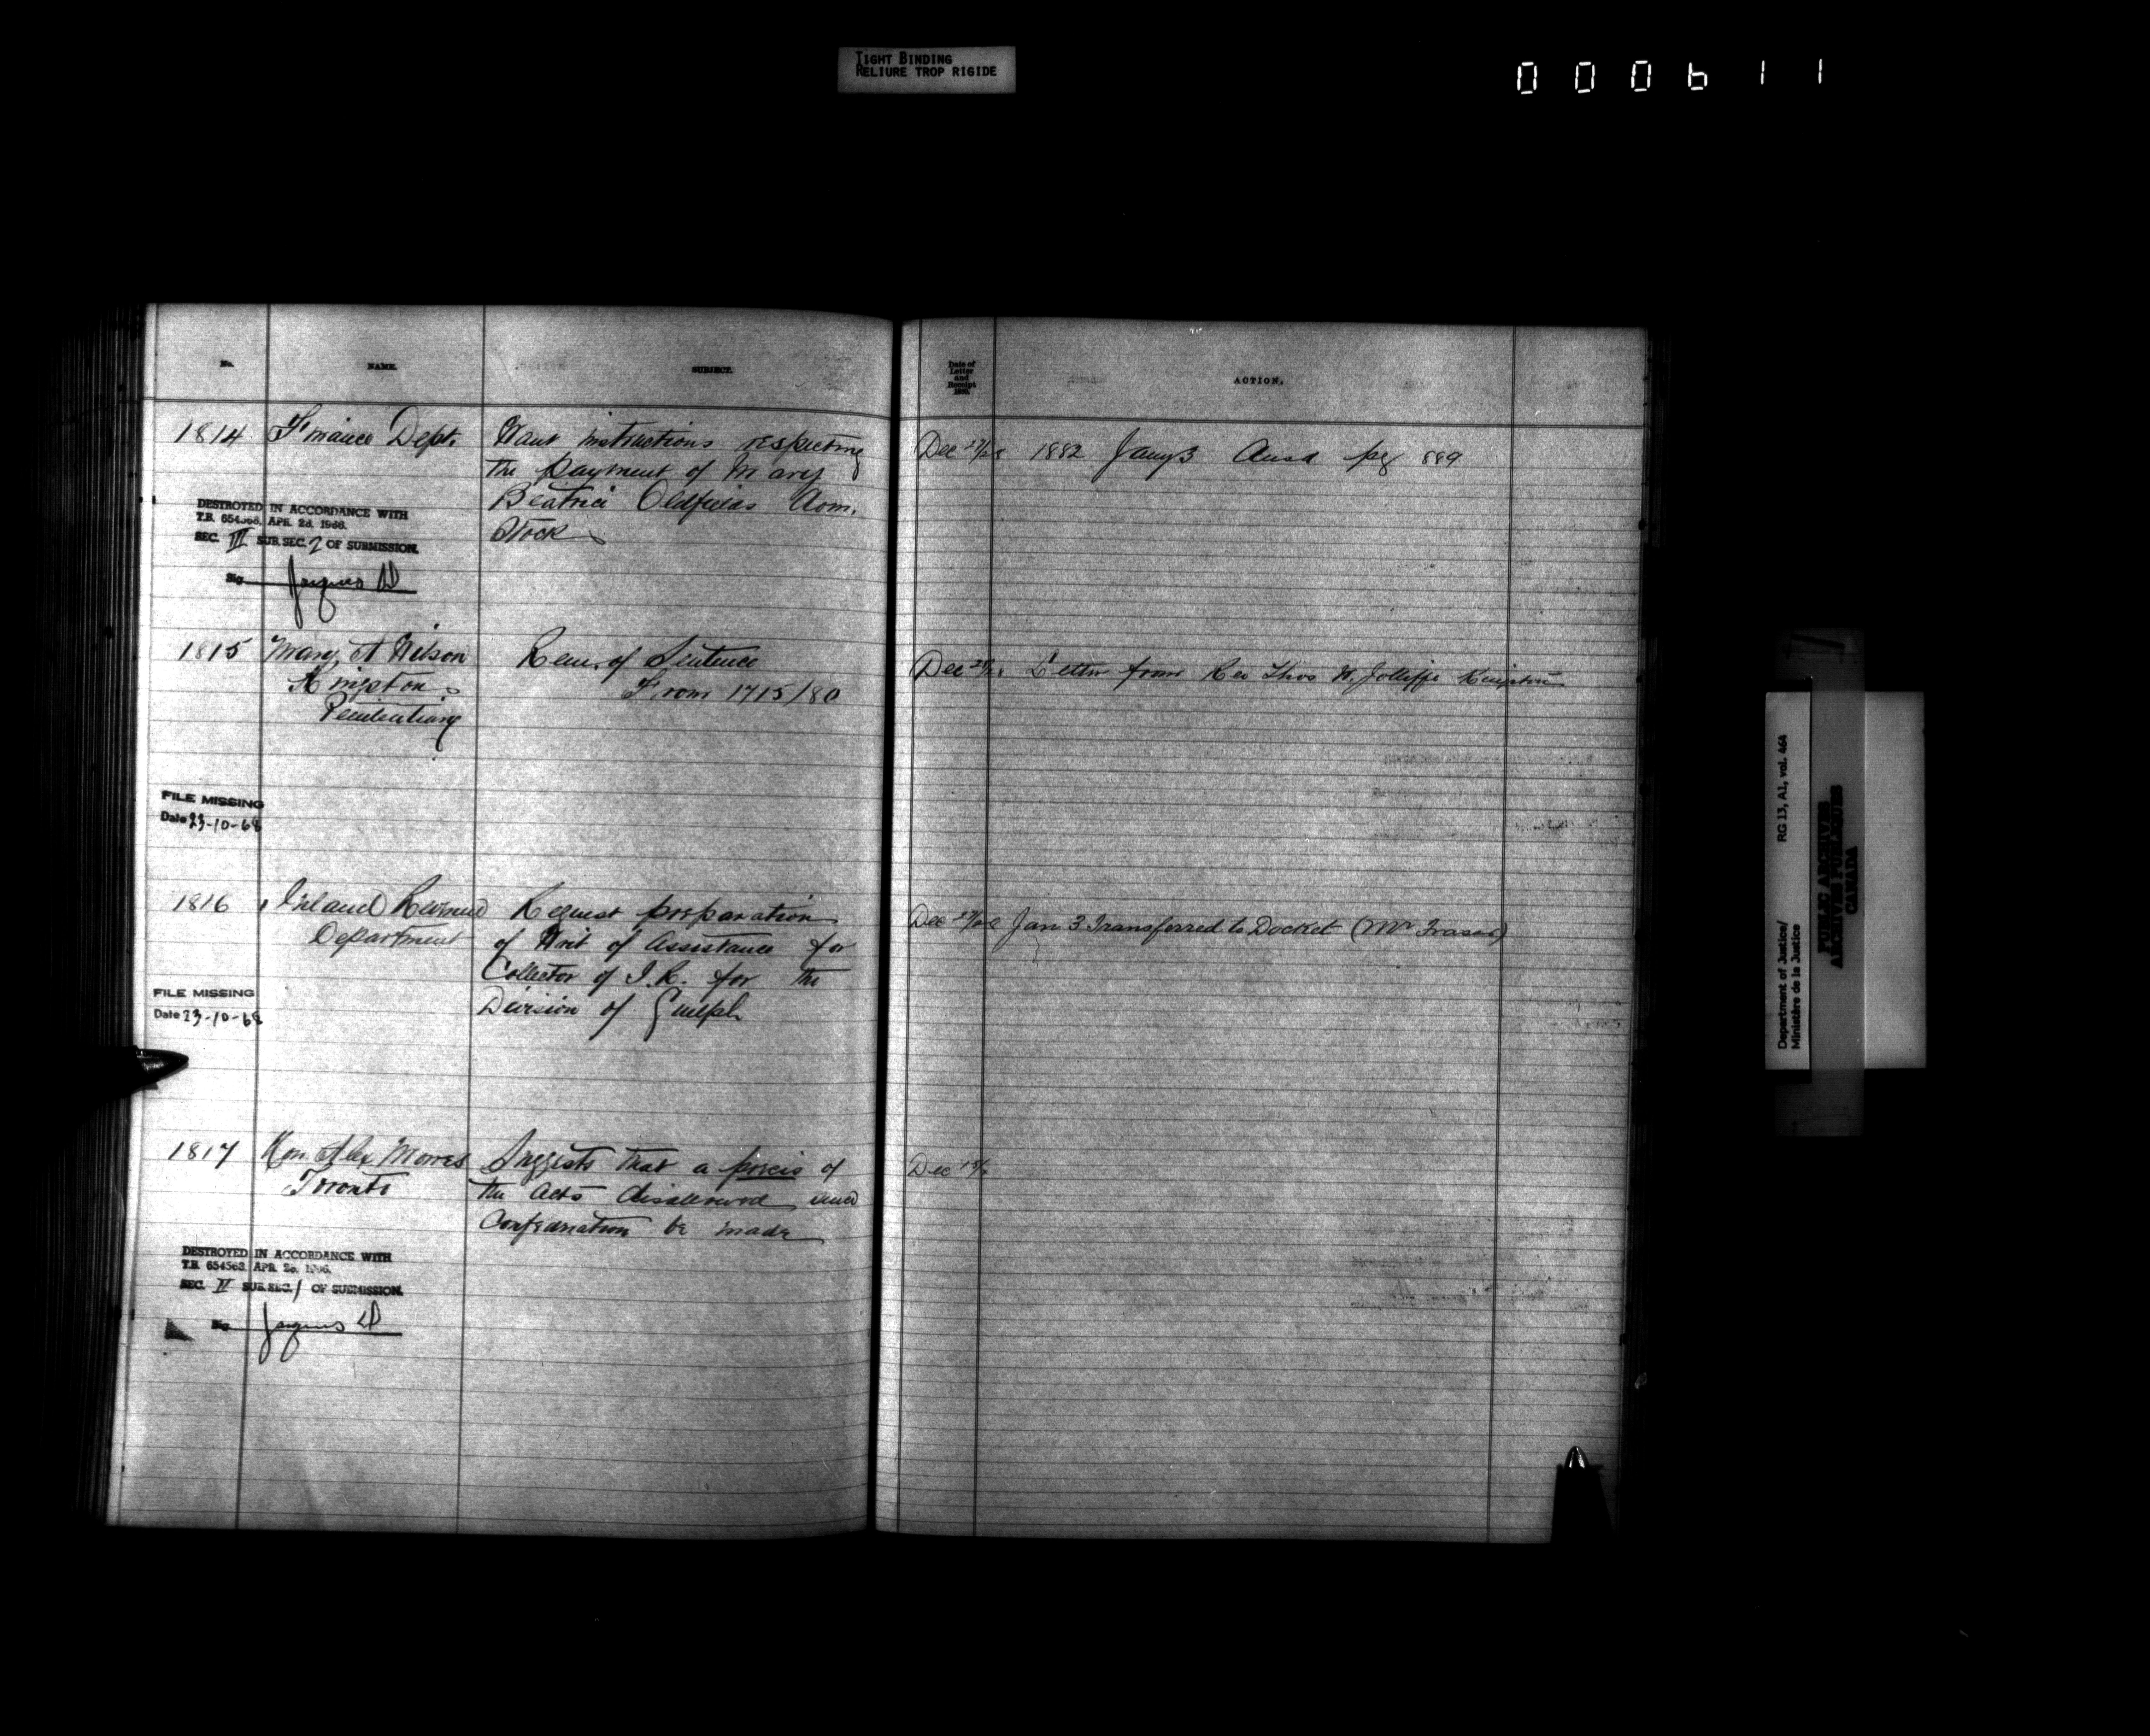 TIGHT BINDING
RELIURE TROP RIGIDE
000611
No.
NAME.
SUBJECT.
Date of
Letter
and
Receipt
ACTION.
1814 Finance Dept. Want instructions respecting
the payment of Mary
Beatrice Oldfields Dom.
Stock
Dec 27/28 1882 Jany 3 Ansd pg 889
DESTROYED IN ACCORDANCE WITH
T.B. 654563, APR. 28, 1966.
SEC. III SUB.SEC. 2 OF SUBMISSION.
Sig Jacques
1815 Mary A Wilson Rem. of Sentence
Kingston From 1715/80
Penitentiary
Dec Letter from Rev Thos W. Jolliffe Kingston
FILE MISSING
Date 23-10-68
1816 Inland Revenue Request preparation
Department of Writ of Assistance for
Collector of I.R. for the
Division of Guelph
Dec 27/28 Jan 3 Transferred to Docket (Mr Fraser)
FILE MISSING
Date 23-10-68
1817 Hon. Alex Morris Suggests that a precis of
Toronto the Acts disallowed since
Confederation be made
Dec
DESTROYED IN ACCORDANCE WITH
T.B. 654563, APR. 28, 1966.
SEC. II SUB.SEC. 1 OF SUBMISSION.
Sig Jacques
Department of Justice/ RG 13, A1, vol. 464
Ministère de la Justice
PUBLIC ARCHIVES
ARCHIVES PUBLIQUES
CANADA